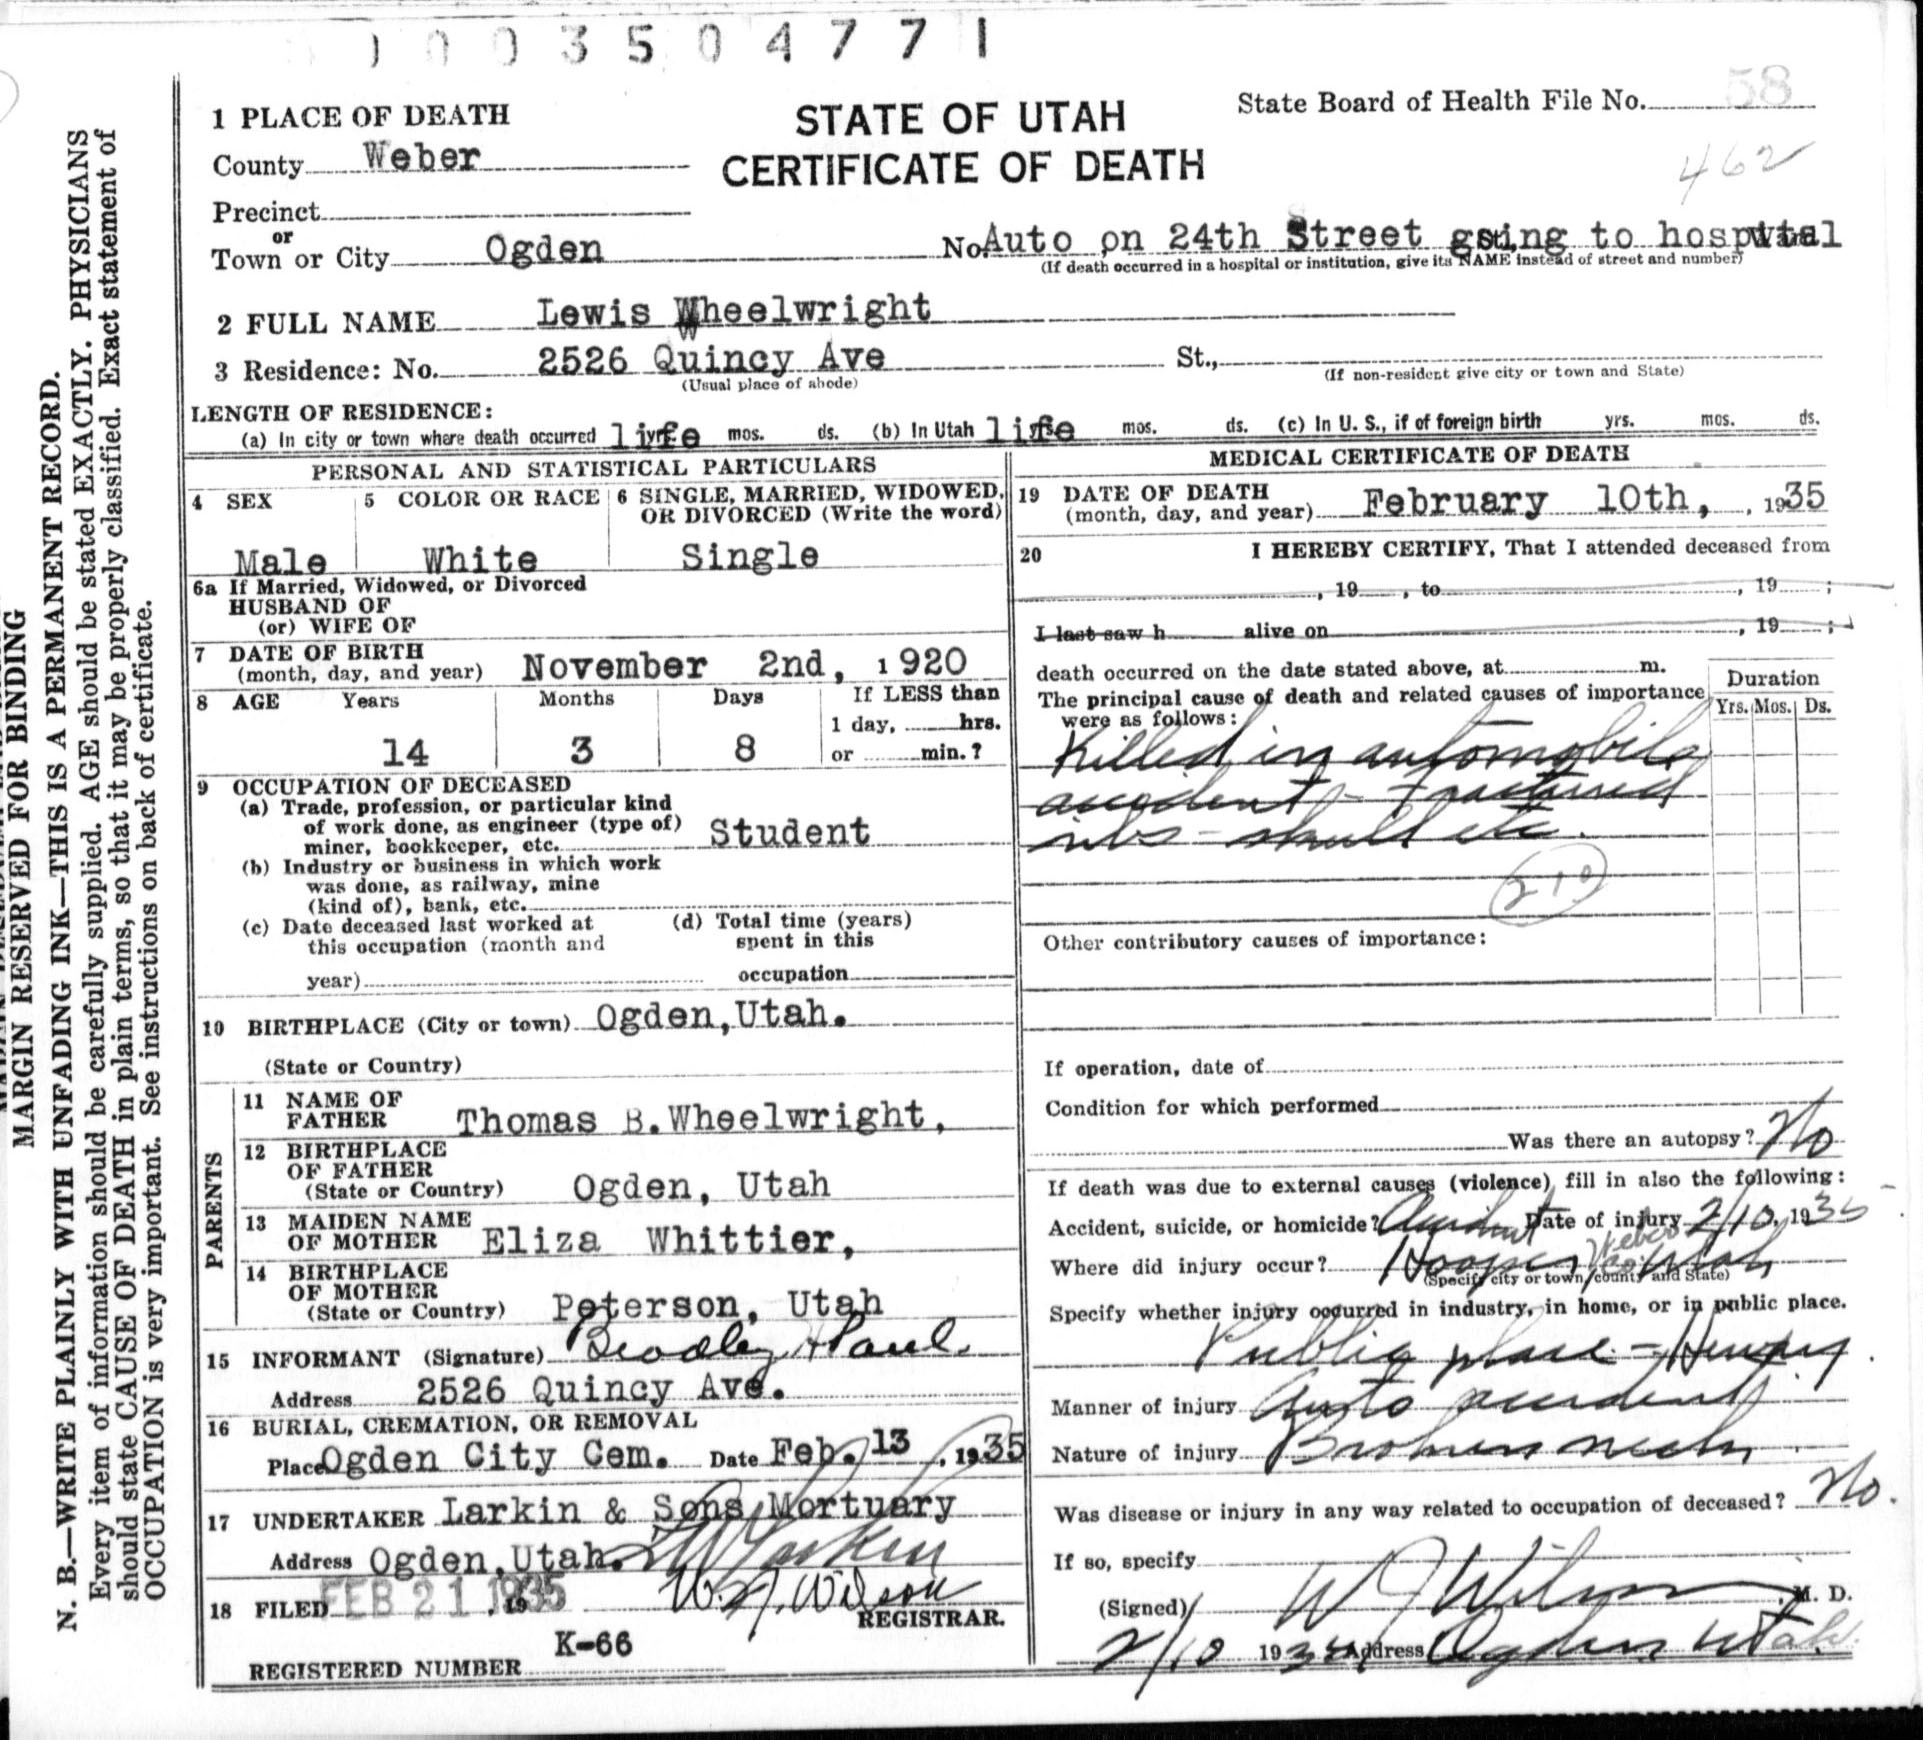 1 0 0 3 5 0 4 7 7 1
1 PLACE OF DEATH
STATE OF UTAH
CERTIFICATE OF DEATH
State Board of Health File No. 58
462
County Weber
Precinct
or
Town or City Ogden No. Auto on 24th Street going to hospital
(If death occurred in a hospital or institution, give its NAME instead of street and number)
2 FULL NAME Lewis Wheelwright
3 Residence: No. 2526 Quincy Ave St.,
(Usual place of abode) (If non-resident give city or town and State)
LENGTH OF RESIDENCE:
(a) In city or town where death occurred life yrs. mos. ds. (b) In Utah life yrs. mos. ds. (c) In U. S., if of foreign birth yrs. mos. ds.
PERSONAL AND STATISTICAL PARTICULARS
4 SEX 5 COLOR OR RACE 6 SINGLE, MARRIED, WIDOWED, OR DIVORCED (Write the word)
Male White Single
6a If Married, Widowed, or Divorced
HUSBAND OF
(or) WIFE OF
7 DATE OF BIRTH
(month, day, and year) November 2nd, 1920
8 AGE Years Months Days If LESS than
1 day, hrs.
14 3 8 or min.?
9 OCCUPATION OF DECEASED
(a) Trade, profession, or particular kind
of work done, as engineer (type of)
miner, bookkeeper, etc. Student
(b) Industry or business in which work
was done, as railway, mine
(kind of), bank, etc.
(c) Date deceased last worked at (d) Total time (years)
this occupation (month and spent in this
year) occupation
10 BIRTHPLACE (City or town) Ogden, Utah.
(State or Country)
PARENTS
11 NAME OF
FATHER Thomas B. Wheelwright,
12 BIRTHPLACE
OF FATHER
(State or Country) Ogden, Utah
13 MAIDEN NAME
OF MOTHER Eliza Whittier,
14 BIRTHPLACE
OF MOTHER
(State or Country) Peterson, Utah
15 INFORMANT (Signature) Paul.
Address 2526 Quincy Ave.
16 BURIAL, CREMATION, OR REMOVAL
Place Ogden City Cem. Date Feb. 13, 1935
17 UNDERTAKER Larkin & Sons Mortuary
Address Ogden, Utah. Larkin
18 FILED FEB 21 1935 W. J. Wilson
REGISTRAR.
K-66
REGISTERED NUMBER
MEDICAL CERTIFICATE OF DEATH
19 DATE OF DEATH
(month, day, and year) February 10th, , 1935
20 I HEREBY CERTIFY, That I attended deceased from
, 19 , to , 19 ;
I last saw h alive on , 19 ;
death occurred on the date stated above, at m.
The principal cause of death and related causes of importance
were as follows:
Duration
Yrs. Mos. Ds.
Killed in automobile
accident - fractured
ribs - skull etc.
210
Other contributory causes of importance:
If operation, date of
Condition for which performed
Was there an autopsy? No
If death was due to external causes (violence) fill in also the following:
Accident, suicide, or homicide? Accident Date of injury 2/10, 1935
Where did injury occur? Hooper Weber Co. Utah
(Specify city or town, county and State)
Specify whether injury occurred in industry, in home, or in public place.
Public place - Hiway.
Manner of injury Auto accident
Nature of injury Broken neck
Was disease or injury in any way related to occupation of deceased? No.
If so, specify
(Signed) W J Wilson, M. D.
2/10 1935 Address Ogden Utah.
MARGIN RESERVED FOR BINDING
N. B.—WRITE PLAINLY WITH UNFADING INK—THIS IS A PERMANENT RECORD.
Every item of information should be carefully supplied. AGE should be stated EXACTLY. PHYSICIANS
should state CAUSE OF DEATH in plain terms, so that it may be properly classified. Exact statement of
OCCUPATION is very important. See instructions on back of certificate.